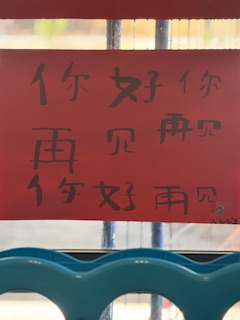 你好你
再见再见
你好再见